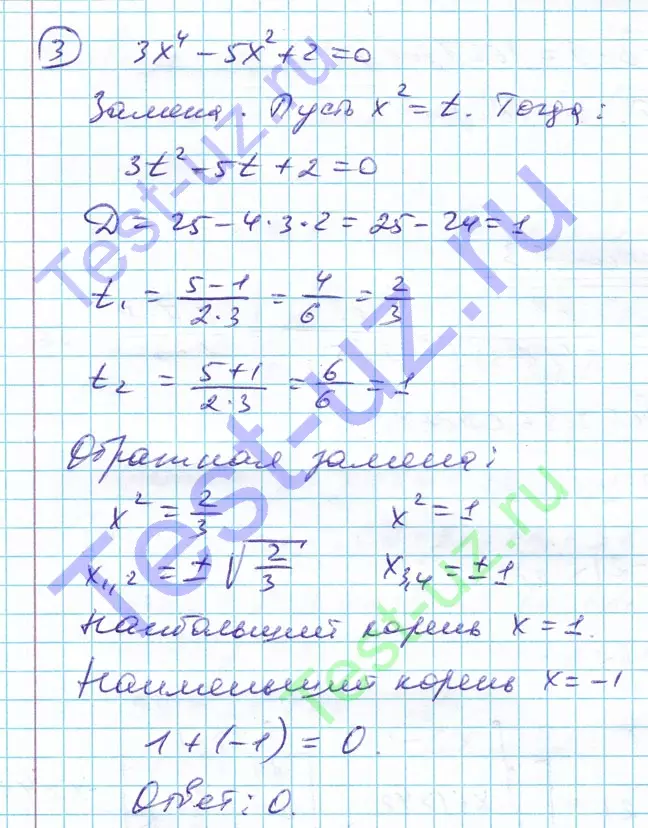 3 3x⁴ − 5x² + 2 = 0
Замена. Пусть x² = t. Тогда:
3t² − 5t + 2 = 0
D = 25 − 4·3·2 = 25 − 24 = 1
t₁ = (5−1)/(2·3) = 4/6 = 2/3
t₂ = (5+1)/(2·3) = 6/6 = 1
Обратная замена:
x² = 2/3 x² = 1
x₁,₂ = ±√(2/3) x₃,₄ = ±1
Наибольший корень x = 1.
Наименьший корень x = −1
1 + (−1) = 0.
Ответ: 0.
Test-uz.ru
Test-uz.ru
Test-uz.ru